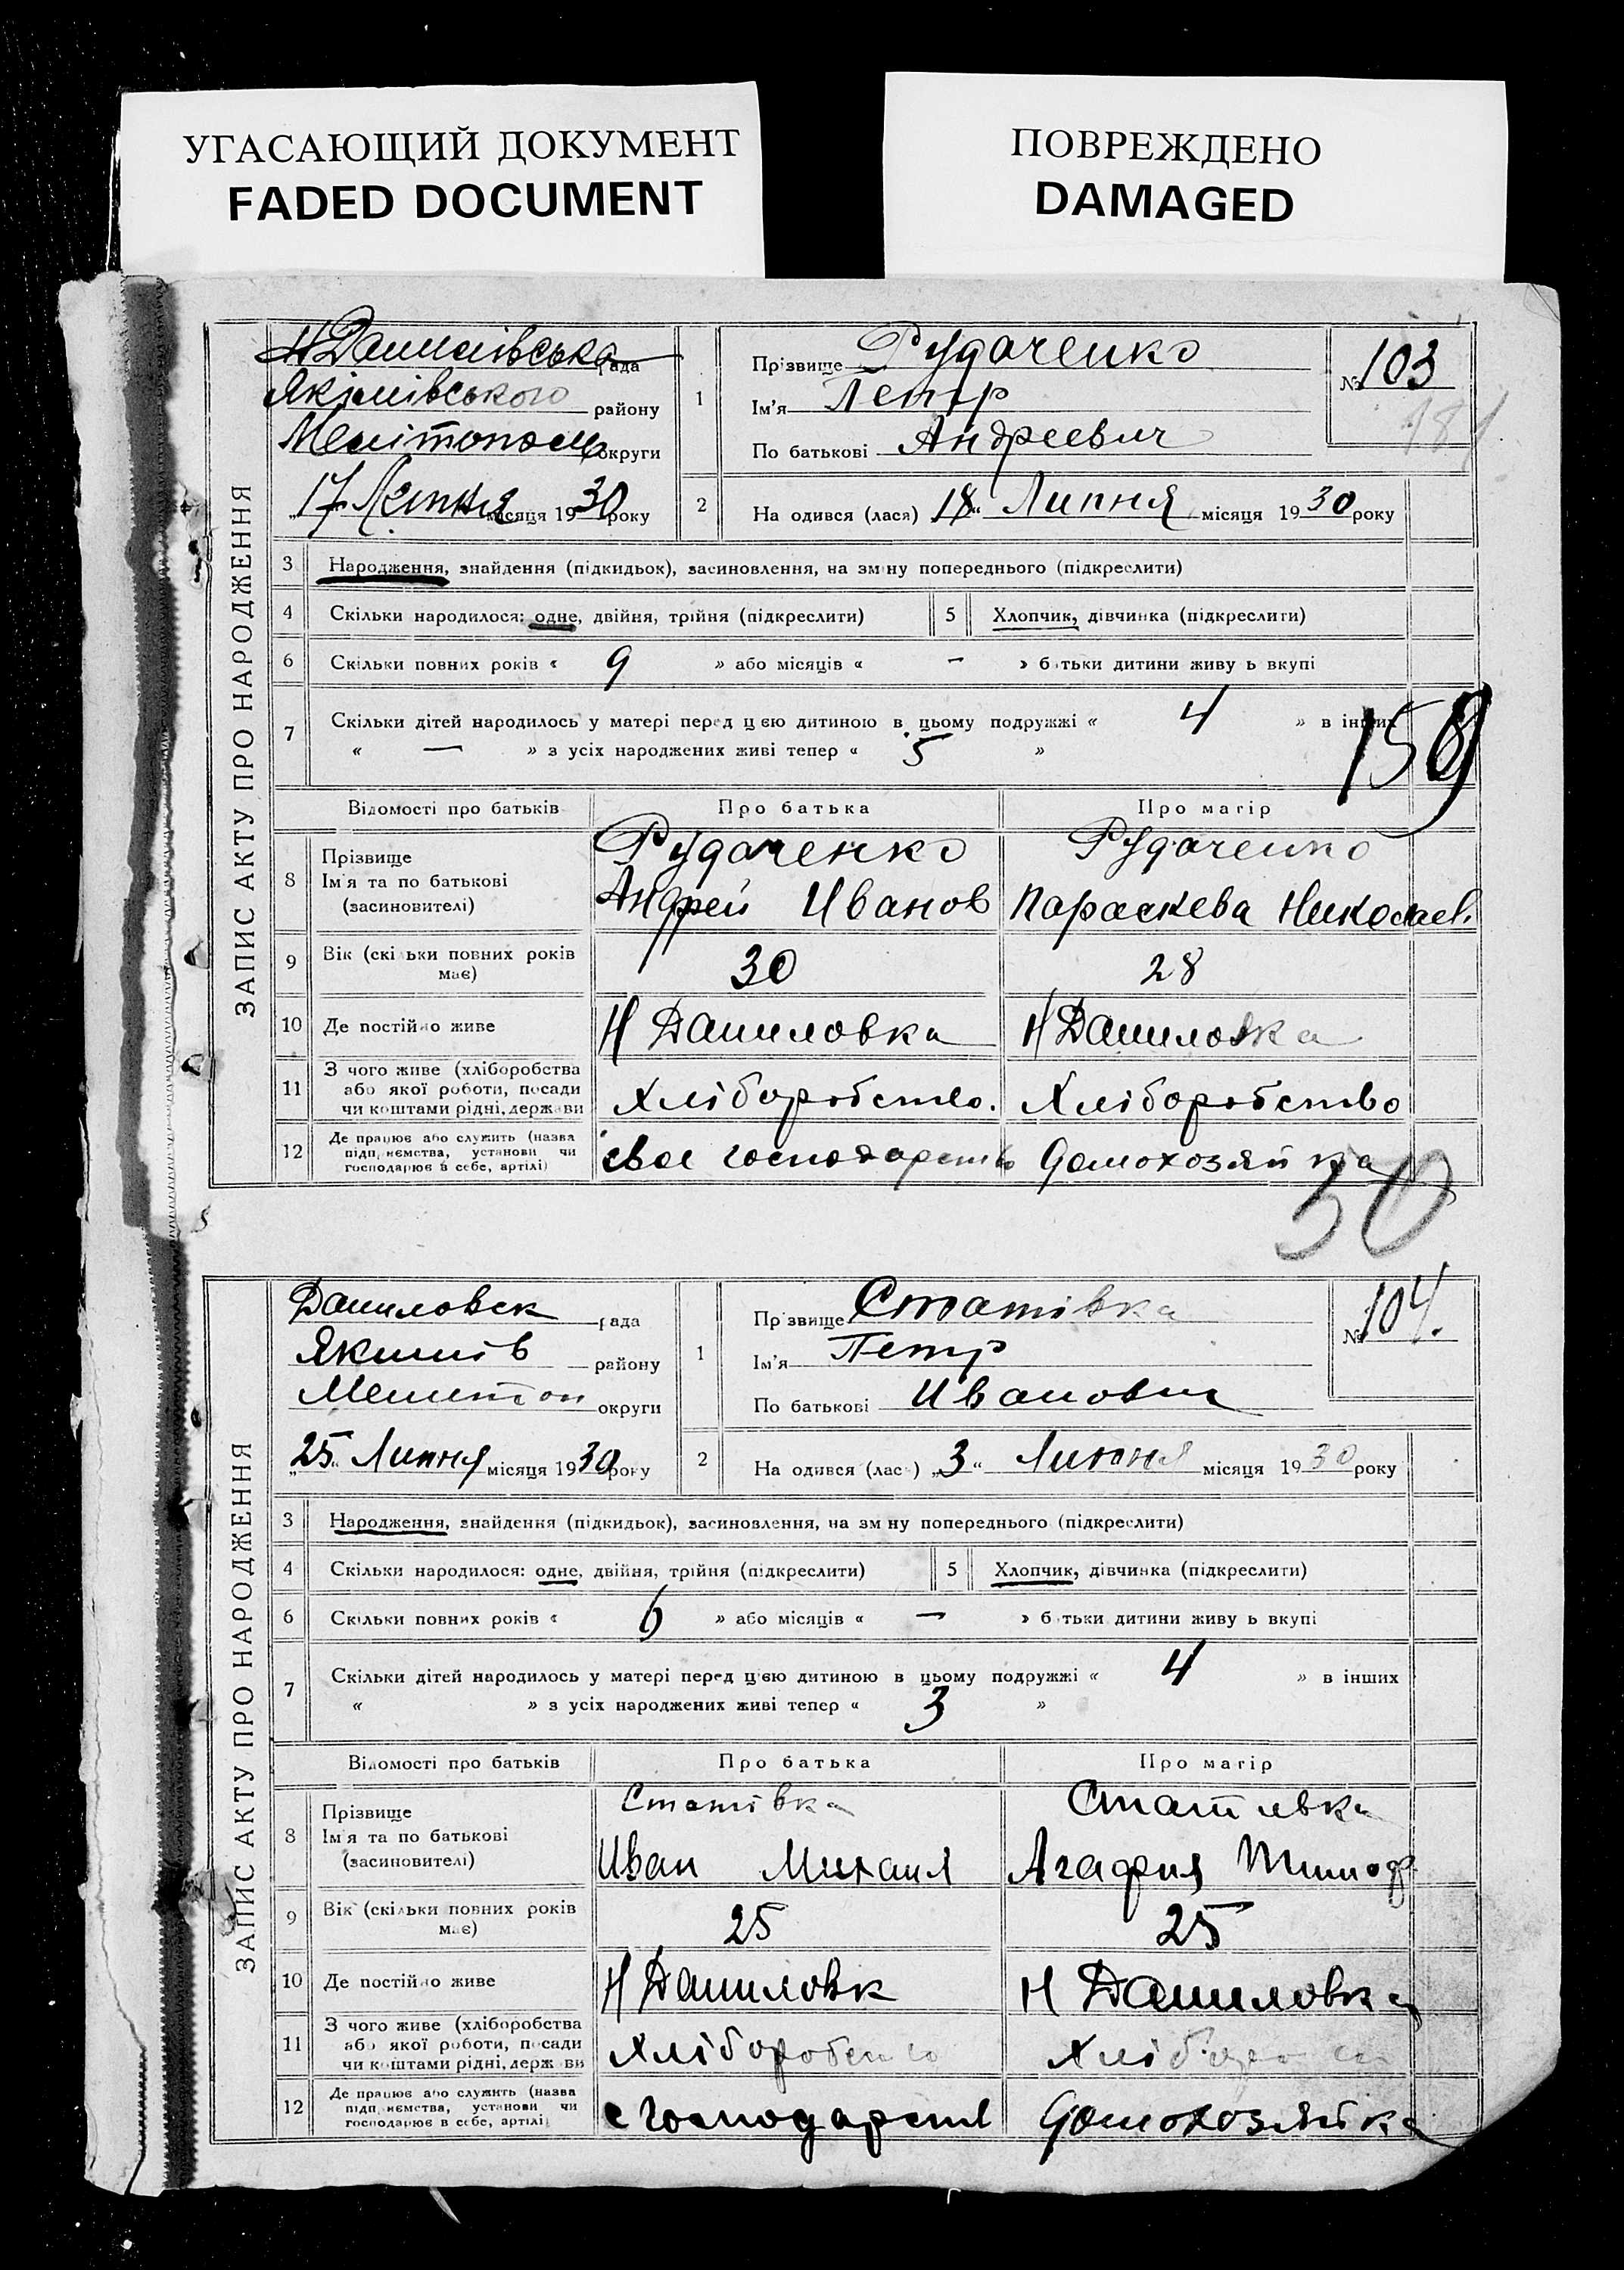 УГАСАЮЩИЙ ДОКУМЕНТ
FADED DOCUMENT
ПОВРЕЖДЕНО
DAMAGED
ЗАПИС АКТУ ПРО НАРОДЖЕННЯ
Н Данилівська рада
Якимівського району
Мелітополь округи
17 Липня місяця 1930 року
1 Прізвище Рудаченко
Ім'я Петр
По батькові Андреевич
№ 103
181
2 На одився (лася) „18“ Липня місяця 1930 року
3 Народження, знайдення (підкидьок), засиновлення, на зміну попереднього (підкреслити)
4 Скільки народилося: одне, двійня, трійня (підкреслити) 5 Хлопчик, дівчинка (підкреслити)
6 Скільки повних років « 9 » або місяців « — » батьки дитини живу ь вкупі
7 Скільки дітей народилось у матері перед цією дитиною в цьому подружжі « 4 » в інших
« — » з усіх народжених живі тепер « 5 »
159
Відомості про батьків Про батька Про матір
8 Прізвище Рудаченко Рудаченко
Ім'я та по батькові Андрей Иванов Параскева Николаев.
(засиновителі)
9 Вік (скільки повних років має) 30 28
10 Де постійно живе Н Даниловка Н Даниловка
11 З чого живе (хліборобства
або якої роботи, посади
чи коштами рідні, держави Хліборобство. Хліборобство
12 Де працює або служить (назва
підприємства, установи чи
господарює в себе, артілі) свое господарство домохозяйка
50
ЗАПИС АКТУ ПРО НАРОДЖЕННЯ
Даниловск рада
Якимів району
Мелитоп округи
„25“ Липня місяця 1930 року
1 Прізвище Статівка
Ім'я Петр
По батькові Иванович
№ 104.
2 На одився (лася) „3“ Липня місяця 1930 року
3 Народження, знайдення (підкидьок), засиновлення, на зміну попереднього (підкреслити)
4 Скільки народилося: одне, двійня, трійня (підкреслити) 5 Хлопчик, дівчинка (підкреслити)
6 Скільки повних років « 6 » або місяців « — » батьки дитини живу ь вкупі
7 Скільки дітей народилось у матері перед цією дитиною в цьому подружжі « 4 » в інших
« » з усіх народжених живі тепер « 3 »
Відомості про батьків Про батька Про матір
8 Прізвище Статівка Стативка
Ім'я та по батькові Иван Михаил Агафия Тимоф
(засиновителі)
9 Вік (скільки повних років має) 25 25
10 Де постійно живе Н Даниловк Н Даниловка
11 З чого живе (хліборобства
або якої роботи, посади
чи коштами рідні, держави Хліборобство
12 Де працює або служить (назва
підприємства, установи чи
господарює в себе, артілі) с господарств домохозяйка